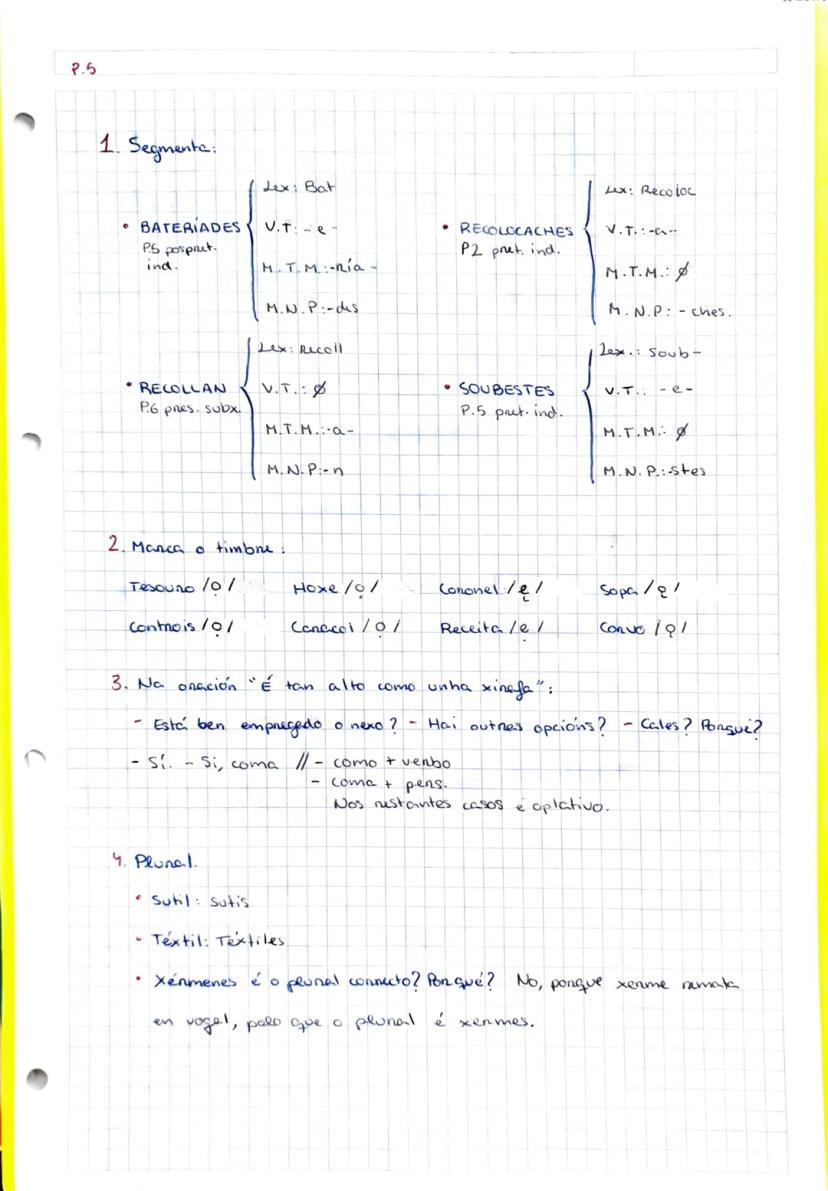 P.5
1. Segmenta:
• BATERÍADES
P5 pospret.
ind.
Lex: Bat
V.T: -e-
M.T.M.: -ría-
M.N.P: -des
• RECOLOCACHES
P2 pret. ind.
Lex: Recoloc
V.T.: -a-
M.T.M.: ø
M.N.P: -ches.
• RECOLLAN
P.6 pres. subx.
Lex: recoll
V.T.: ø
M.T.M.: -a-
M.N.P: -n
• SOUBESTES
P.5 pret. ind.
Lex.: Soub-
V.T.: -e-
M.T.M.: ø
M.N.P.: stes
2. Marca o timbre:
Tesouro /ọ/ Hoxe /ọ/ Coronel /ę/ Sopa /ǫ/
Controis /ǫ/ Caracol /ǫ/ Receita /ẹ/ Corvo /ǫ/
3. Na oración "É tan alto como unha xirafa":
- Está ben empregado o nexo? - Hai outras opcións? - Cales? Porqué?
- Sí. - Si, coma // - como + verbo
- coma + pers.
Nos restantes casos é optativo.
4. Plural.
• Sutil: sutís
• Téxtil: Téxtiles
• Xérmenes é o plural correcto? Porqué? No, porque xerme remata
en vogal, polo que o plural é xermes.